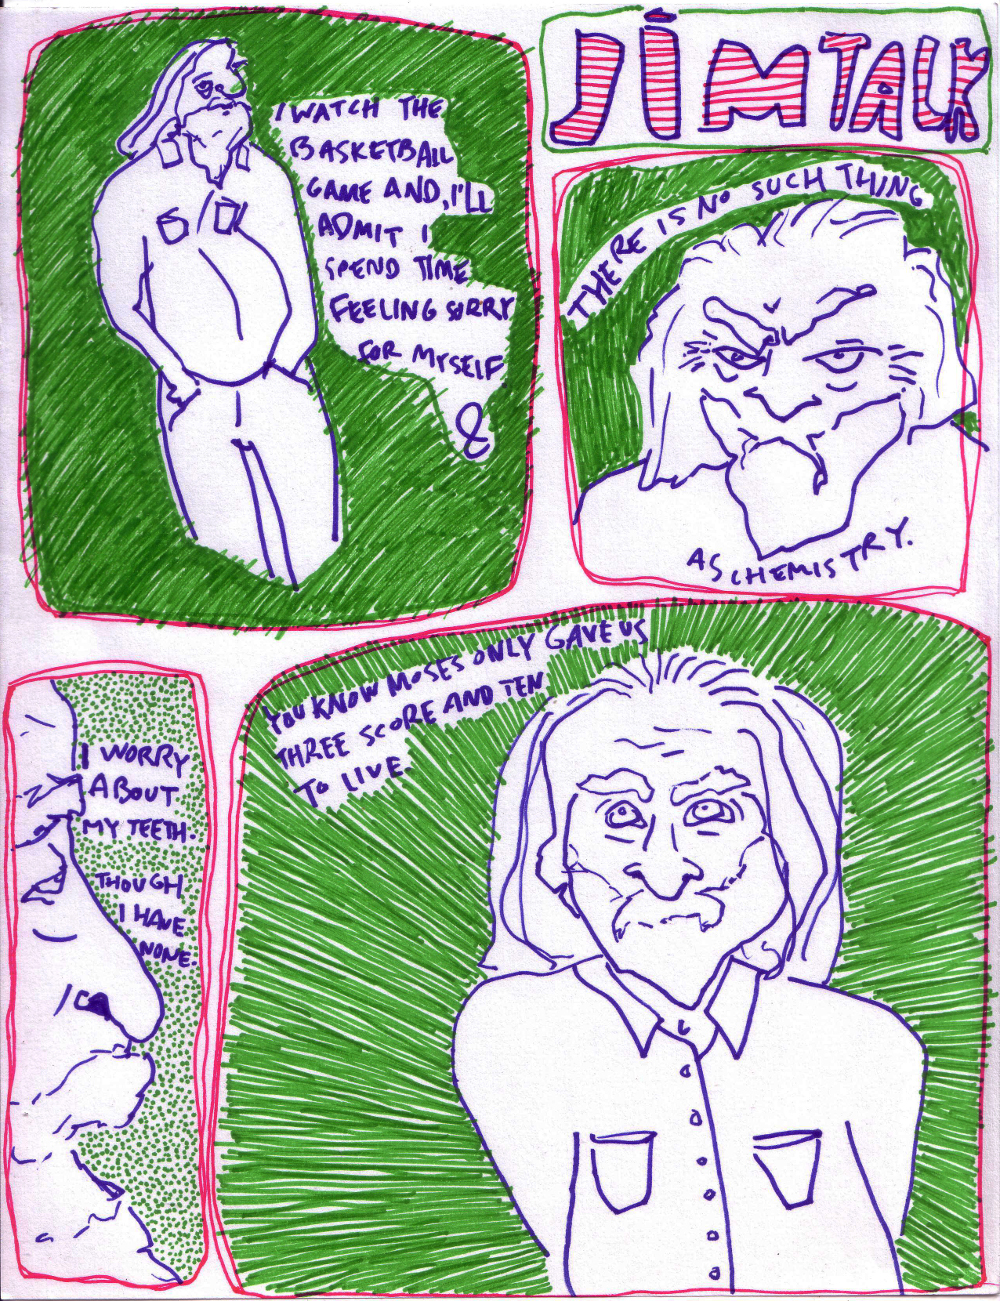 JIM TALK
I WATCH THE
BASKETBALL
GAME AND, I'LL
ADMIT I
SPEND TIME
FEELING SORRY
FOR MYSELF.
&
THERE IS NO SUCH THING
AS CHEMISTRY.
I WORRY
ABOUT
MY TEETH.
THOUGH
I HAVE
NONE.
YOU KNOW MOSES ONLY GAVE US
THREE SCORE AND TEN
TO LIVE.